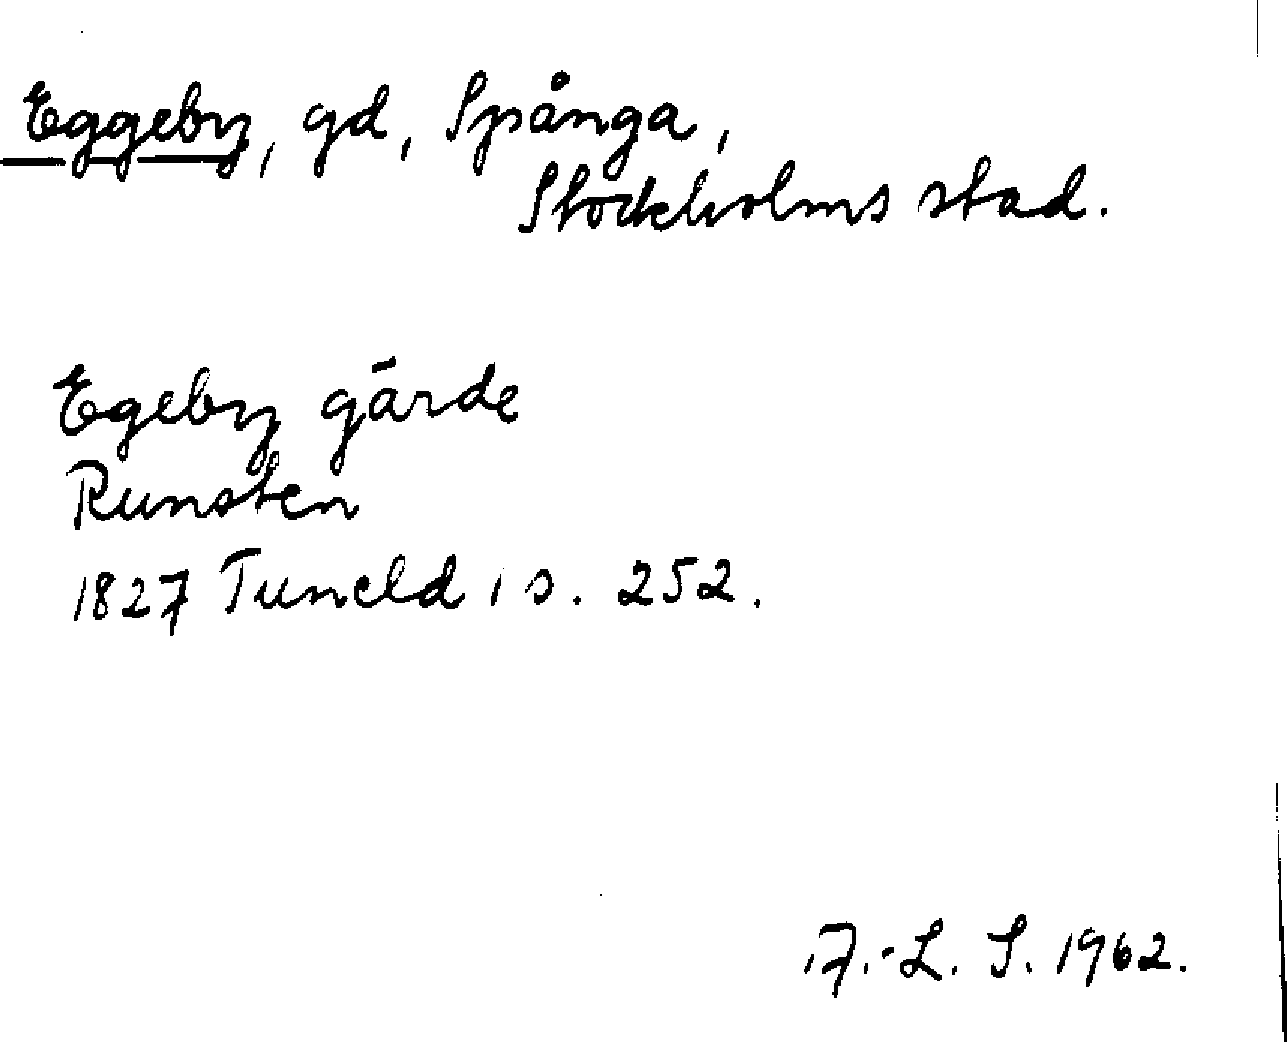 Eggeby, gd, Spånga,
Stockholms stad.
Egeby gärde
Runsten
1827 Tuneld 1 s. 252.
A.-L. S. 1962.